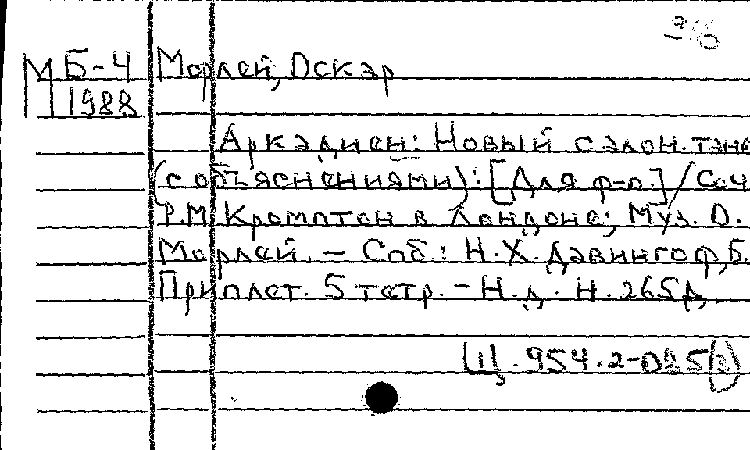 МБ-4 Морлей, Оскар
1988
Аркадиен: Новый салон. тане
(с объяснениями): [Для ф-п.] / Соч
Р.М. Кромптон в Лондоне; Муз. О.
Морлей. - Спб.: Н.Х. Давингоф, Б.
Приплет. 5 тетр. - Н.д. Н. 265д
Щ.954.2-025(2)